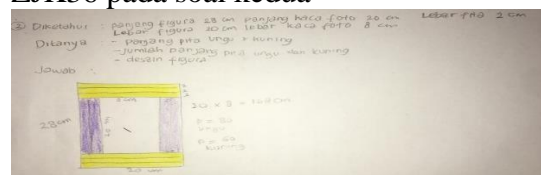 ZJK36 pada soal kedua
③ Diketahui : panjang figura 28 cm panjang kaca foto 20 cm Lebar pita 2 cm
Lebar figura 20 cm lebar kaca foto 8 cm
Ditanya : - panjang pita ungu + kuning
- Jumlah panjang pita ungu dan kuning
- desain figura
Jawab :
28 cm
20 cm
20 × 8 = 160 cm
ungu
kuning